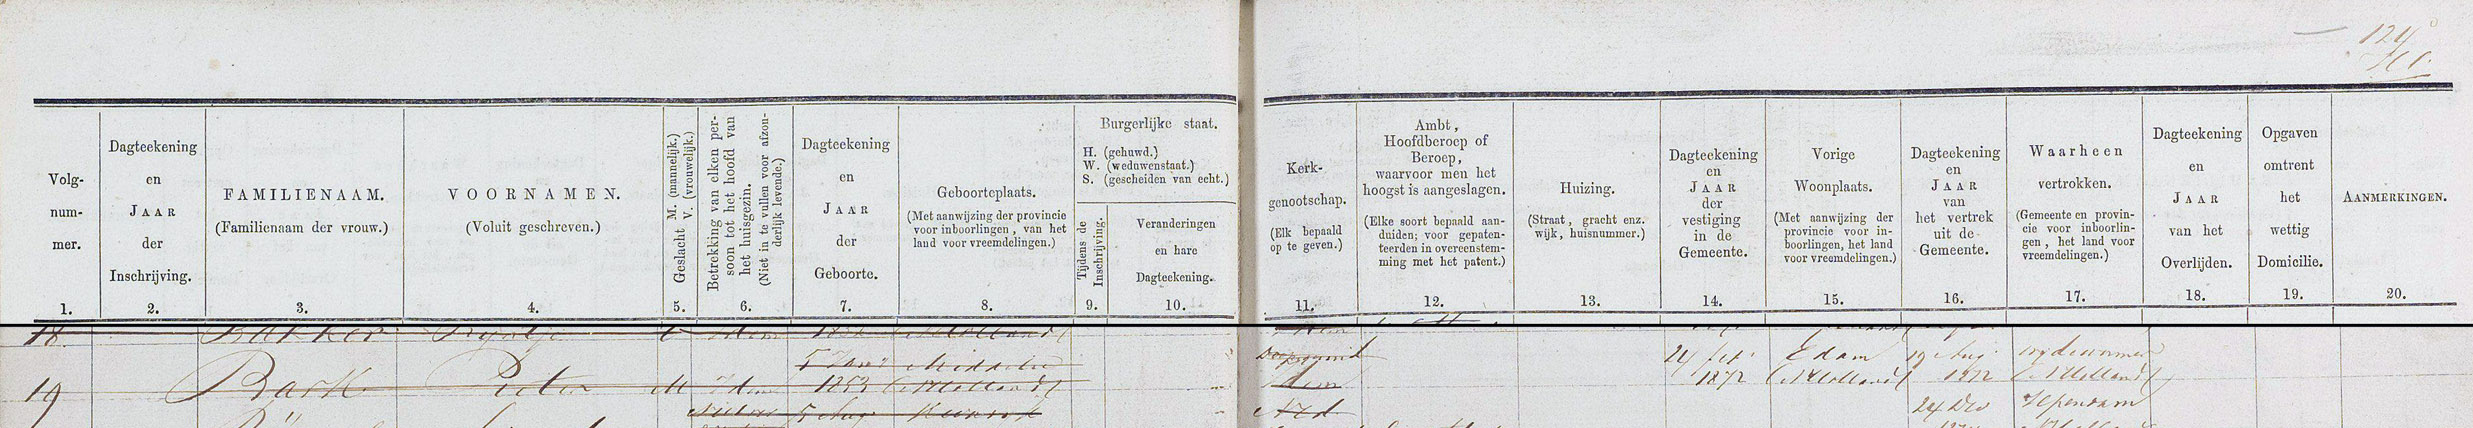 124
Volg-
num-
mer.
1.
Dagteekening
en
JAAR
der
Inschrijving.
2.
FAMILIENAAM.
(Familienaam der vrouw.)
3.
VOORNAMEN.
(Voluit geschreven.)
4.
Geslacht M. (mannelijk.)
V. (vrouwelijk.)
5.
Betrekking van elken per-
soon tot het hoofd van
het huisgezin.
(Niet in te vullen voor afzon-
derlijk levende.)
6.
Dagteekening
en
JAAR
der
Geboorte.
7.
Geboorteplaats.
(Met aanwijzing der provincie
voor inboorlingen, van het
land voor vreemdelingen.)
8.
Burgerlijke staat.
H. (gehuwd.)
W. (weduwenstaat.)
S. (gescheiden van echt.)
Tijdens de
Inschrijving.
9.
Veranderingen
en hare
Dagteekening.
10.
Kerk-
genootschap.
(Elk bepaald
op te geven.)
11.
Ambt,
Hoofdberoep of
Beroep,
waarvoor men het
hoogst is aangeslagen.
(Elke soort bepaald aan-
duiden; voor gepaten-
teerden in overeenstem-
ming met het patent.)
12.
Huizing.
(Straat, gracht enz.
wijk, huisnummer.)
13.
Dagteekening
en
JAAR
der
vestiging
in de
Gemeente.
14.
Vorige
Woonplaats.
(Met aanwijzing der
provincie voor in-
boorlingen, het land
voor vreemdelingen.)
15.
Dagteekening
en
JAAR
van
het vertrek
uit de
Gemeente.
16.
Waarheen
vertrokken.
(Gemeente en provin-
cie voor inboorlin-
gen, het land voor
vreemdelingen.)
17.
Dagteekening
en
JAAR
van het
Overlijden.
18.
Opgaven
omtrent
het
wettig
Domicilie.
19.
AANMERKINGEN.
20.
18 Bakker Idem
5 Middelie Doopsgezind 24 Edam 19 Aug
19 Bark Pieter M Idem 1853 (N Holland) Idem 1872 (N Holland) 1872 (N Holland)
5 Aug Ned 24 Dec Ilpendam